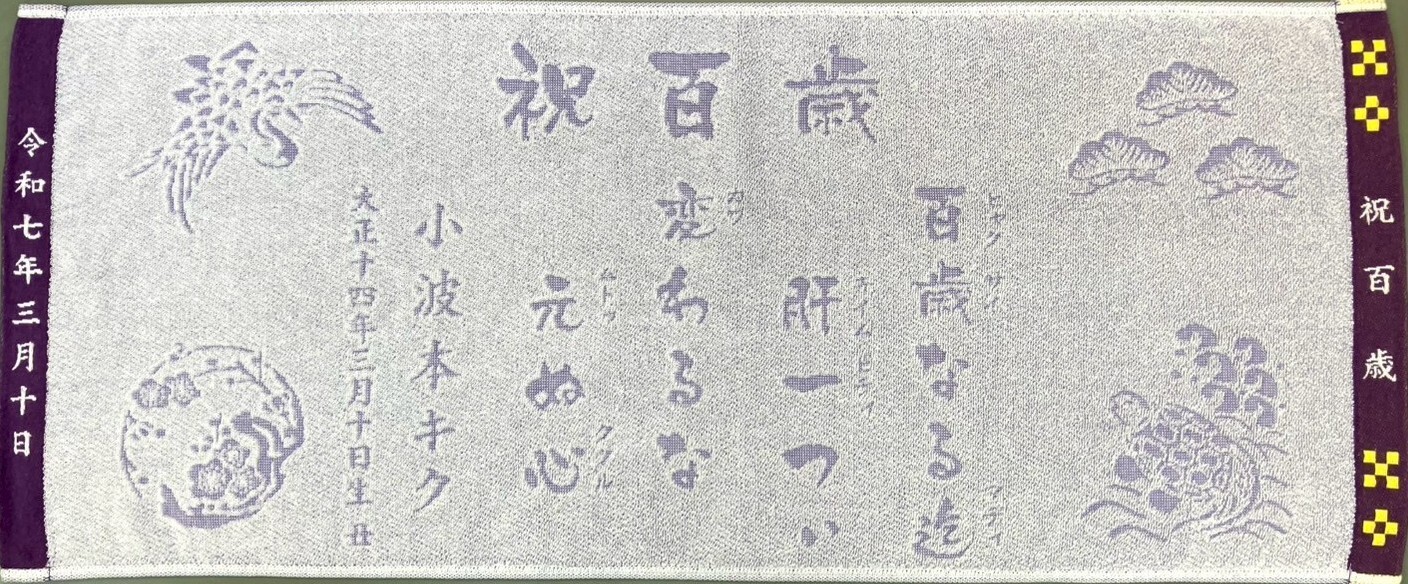 祝百歳
祝百歳
百歳なる迄
ヒャクサイ マディ
肝一つい
チイムヒティ
変わるな
カワ
元ぬ心
ムトゥ ククル
小波本キク
大正十四年三月十日生 丑
令和七年三月十日